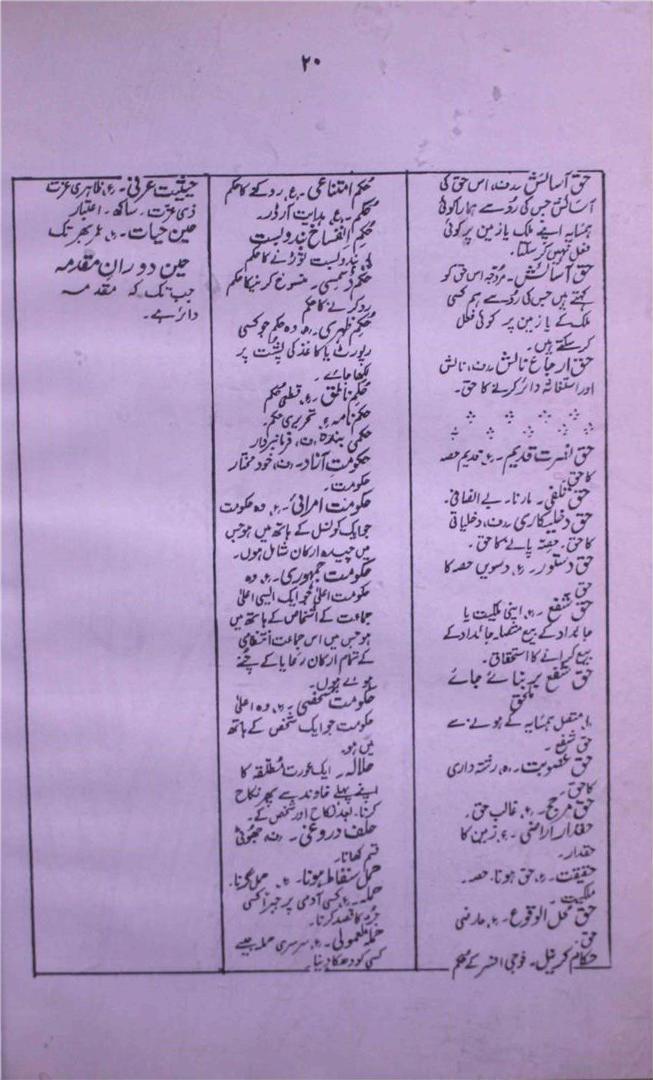 ۲۰
حق آسائش۔ (ف) اس حق کی
آسائش جس کی رُو سے ہمارا کوئی
ہمسایہ اپنے ملک یا زمین پر کوئی
فعل نہیں کر سکتا۔
حق آسائش۔ مُردّجہ اس حق کو
کہتے ہیں جس کی رُو سے ہم کسی
ملک کے یا زمین پر کوئی فعل
کر سکتے ہیں۔
حق ارجاع نالش (ف) نالش
اور استغاثہ دائر کرنے کا حق۔
حق قدیم۔ (ع) قدیم حصہ
کا حق۔
حق تلفی۔ مارنا۔ بے انصافی۔
حق دخلیکاری (ف) دخلیاتی
کا حق۔ حصّہ پانے کا حق۔
حق دستور۔ (ع) دسویں حصہ کا
حق
حق شفع۔ (ع) اپنی ملکیت یا
جائداد کے بیع متصلہ جائداد کے
بیع کرانے کا استحقاق۔
حق شفع بر بنائے جائے
ملحق
(ا) متصل ہمسایہ کے ہونے سے
حق شفع۔
حق عصوبت۔ (ہ) رشتہ داری
کا حق۔
حق مرجح۔ (ع) غالب حق۔
حقدار اراضی۔ (ع) زمین کا
حقدار۔
حقیقت۔ (ع) حق ہونا۔ حصہ۔
ملکیت۔
حق محل الوقوع۔ (ع) عارضی
حق۔
حکام کرنیل۔ فوجی افسر کے حکم
حُکم امتناعی۔ (ع) روکنے کا حکم
حُکم۔ (ع) ہدایت آرڈر۔
حُکم انفساخ بندوبست
کی بندوبست توڑنے کا حکم
حکم ڈسمسی۔ منسوخ کرنیکا حکم
رد کرنے کا حکم
حُکم ظہری۔ (ہ) وہ حکم جو کسی
رپورٹ یا کاغذ کی پُشت پر
لکھا جائے۔
حُکم ناطق۔ (ع) قطعی حُکم
حکم نامہ (ع) تحریری حکم۔
حکمی بندہ (ف) فرمانبردار
حکومت آزاد۔ (ف) خود مختار
حکومت۔
حکومت امرائی۔ (ع) وہ حکومت
جو ایک کونسل کے ہاتھ میں ہو جس
میں چیدہ ارکان شامل ہوں۔
حکومت جمہوری۔ (ع) وہ
حکومت اعلیٰ جو ایک ایسی اعلیٰ
جماعت کے اشخاص کے ہاتھ میں
ہو جس میں اس جماعت انتظامی
کے تمام ارکان رعایا کے چُنے
ہوئے ہوں۔
حکومت شخصی۔ (ع) وہ اعلیٰ
حکومت جو ایک شخص کے ہاتھ
میں ہو۔
حلالہ۔ ایک عورت مُطلقہ کا
اپنے پہلے خاوند سے پھر نکاح
کرنا۔ بعد نکاح اور شخص کے۔
حلف دروغی۔ (ف) جھوٹی
قسم کھانا۔
حمل سقاط ہونا۔ (ع) حمل گرنا۔
حملہ۔ (ع) کسی آدمی پر جبراً کسی
کا قصد کرنا۔
حملہ معمولی۔ (ع) سرسری حملہ جیسے
کسی کو دھکا دینا۔
حیثیت عرفی۔ (ع) ظاہری عزت
ذی عزت۔ ساکھ۔ اعتبار
حین حیات۔ (ع) عمر بھر تک
حین دورانِ مقدمہ
جب تک کہ مقدمہ
دائر ہے۔